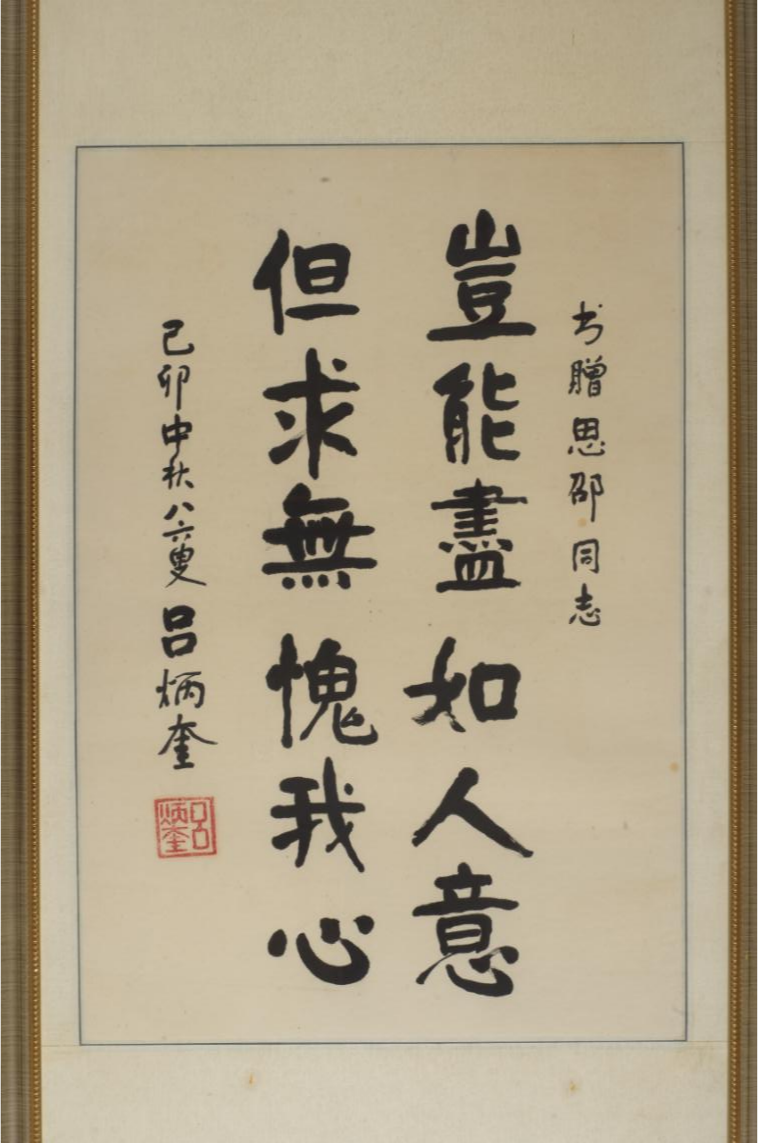 书贈思邵同志
豈能盡如人意
但求無愧我心
己卯中秋八六叟吕炳奎
吕炳奎